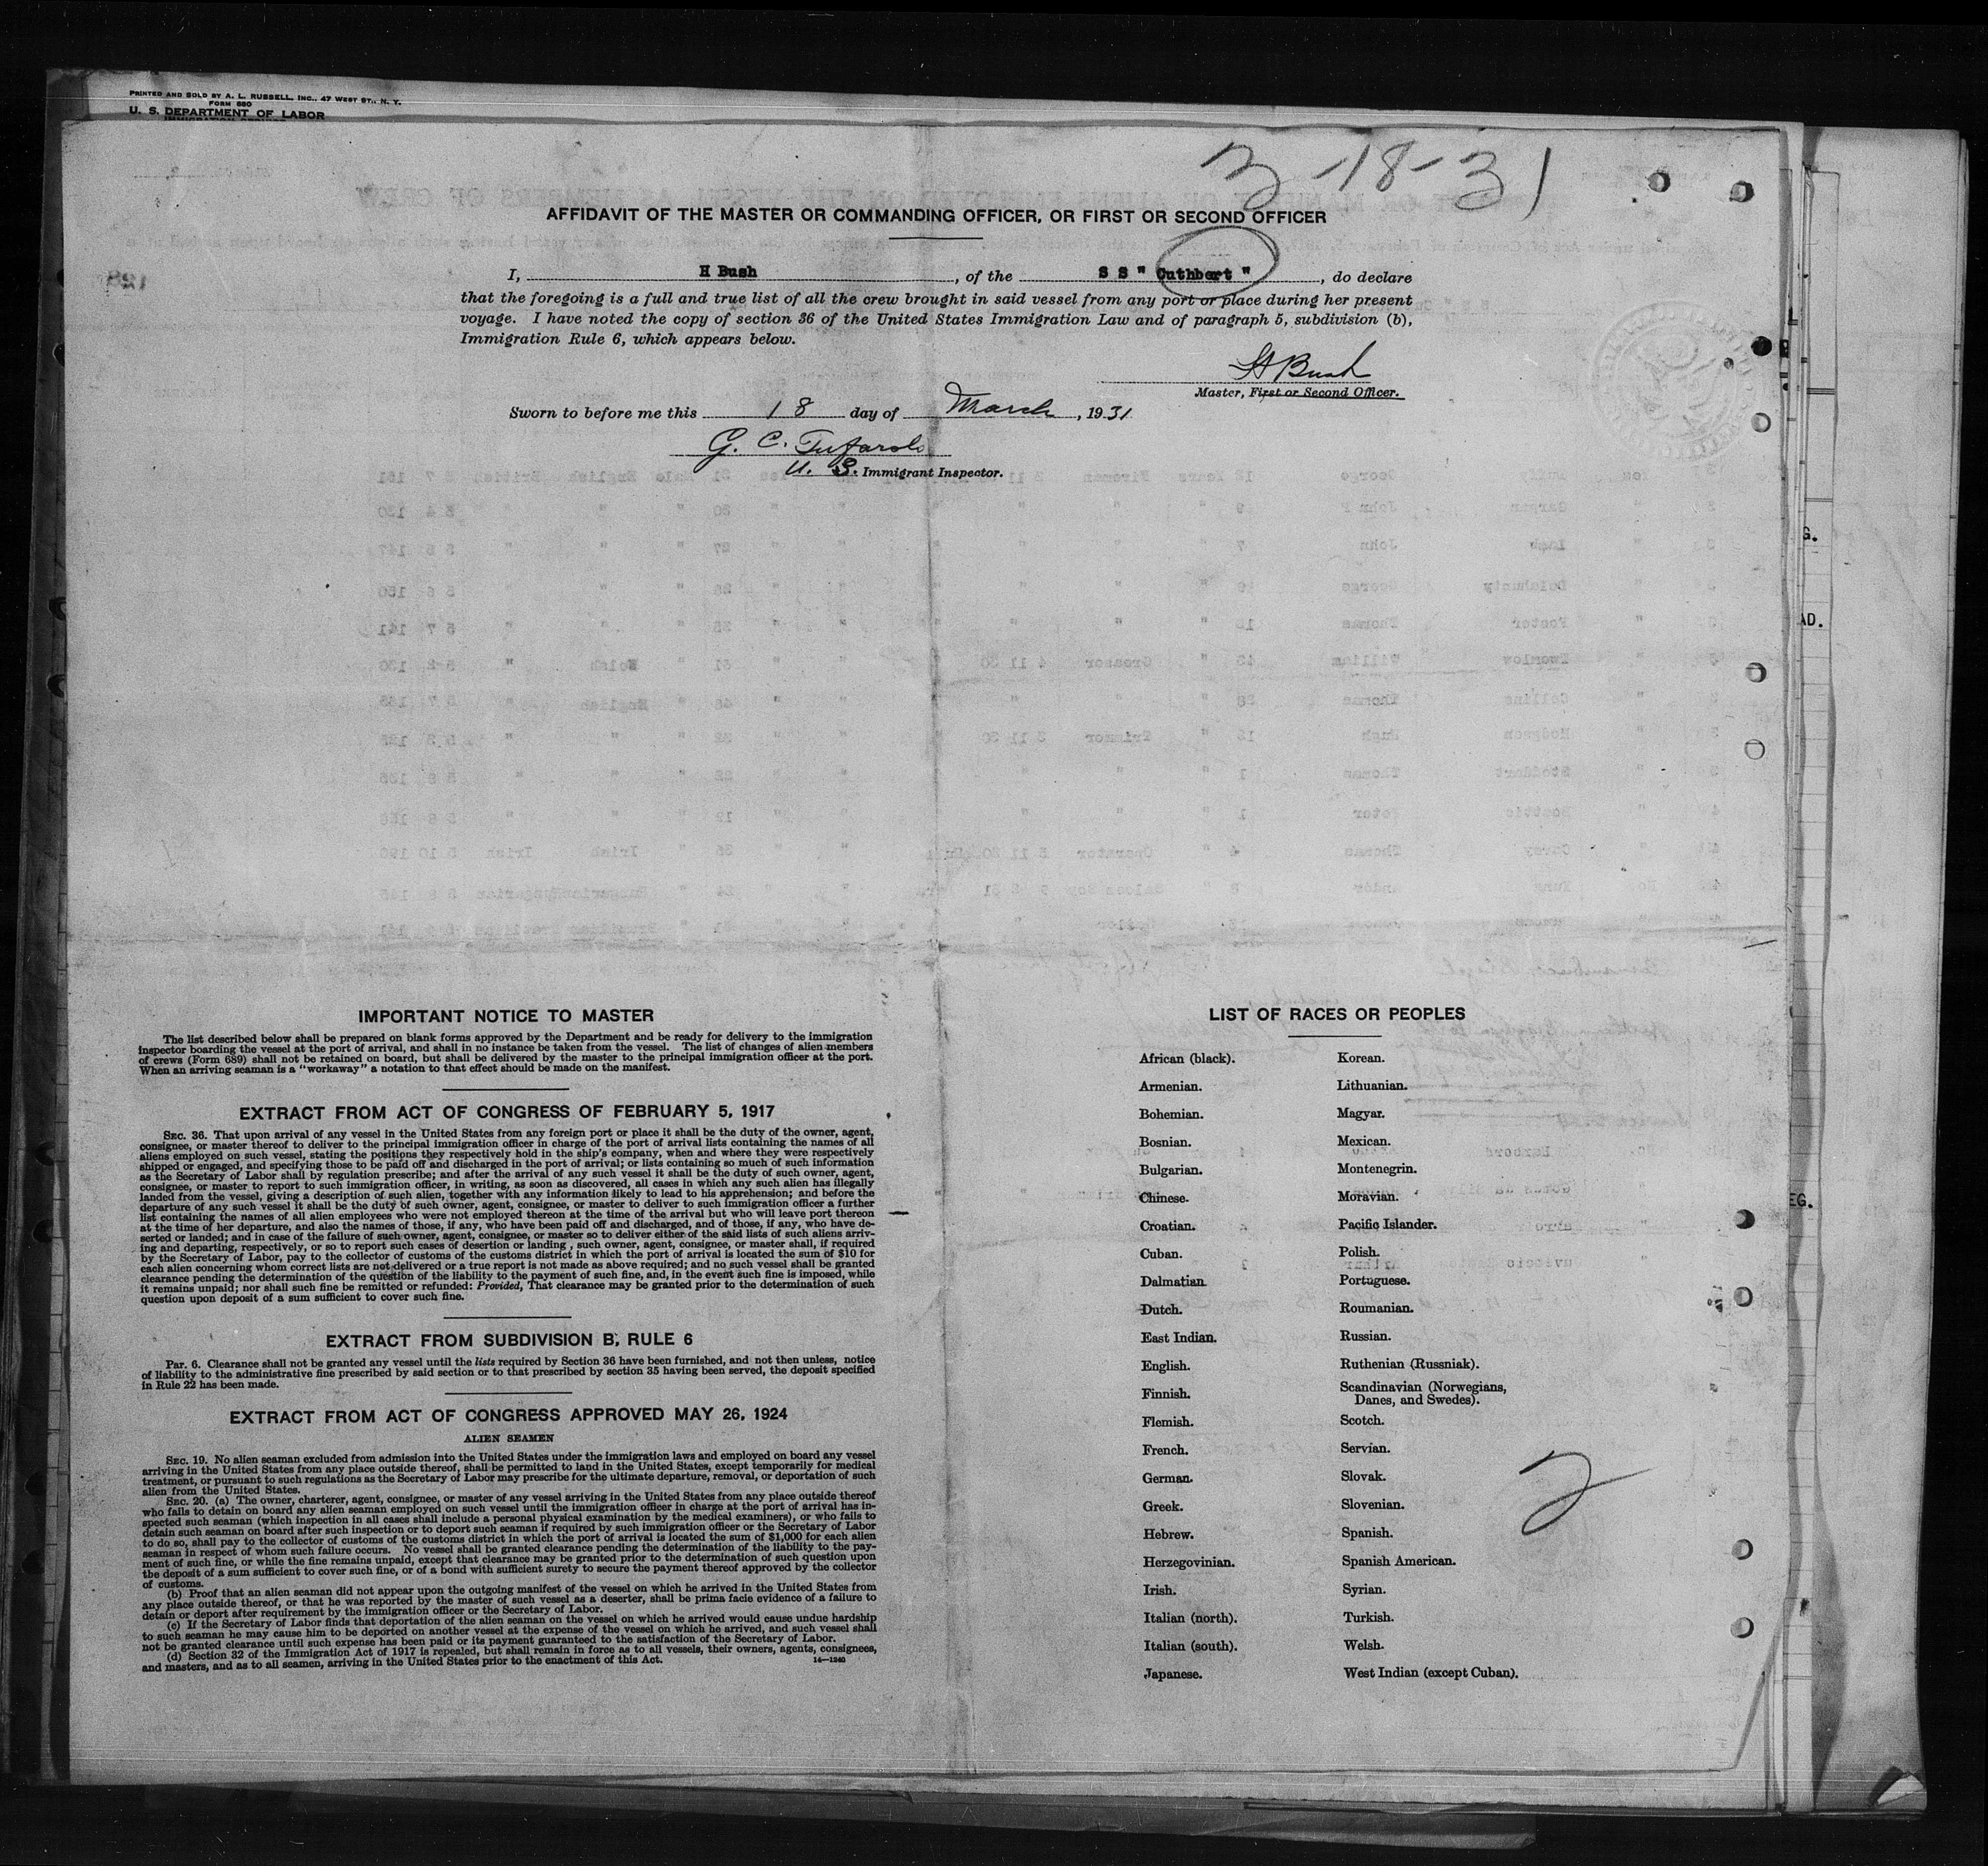 PRINTED AND SOLD BY A. L. RUSSELL, INC., 47 WEST ST., N. Y.
FORM 680
U. S. DEPARTMENT OF LABOR
3-18-31
AFFIDAVIT OF THE MASTER OR COMMANDING OFFICER, OR FIRST OR SECOND OFFICER
I, H Bush, of the S S " Cuthbert ", do declare
that the foregoing is a full and true list of all the crew brought in said vessel from any port or place during her present
voyage. I have noted the copy of section 36 of the United States Immigration Law and of paragraph 5, subdivision (b),
Immigration Rule 6, which appears below.
H Bush
Master, First or Second Officer.
Sworn to before me this 18 day of March, 1931
G. C.
U. S. Immigrant Inspector.
IMPORTANT NOTICE TO MASTER
The list described below shall be prepared on blank forms approved by the Department and be ready for delivery to the immigration
inspector boarding the vessel at the port of arrival, and shall in no instance be taken from the vessel. The list of changes of alien members
of crews (Form 689) shall not be retained on board, but shall be delivered by the master to the principal immigration officer at the port.
When an arriving seaman is a "workaway" a notation to that effect should be made on the manifest.
EXTRACT FROM ACT OF CONGRESS OF FEBRUARY 5, 1917
SEC. 36. That upon arrival of any vessel in the United States from any foreign port or place it shall be the duty of the owner, agent,
consignee, or master thereof to deliver to the principal immigration officer in charge of the port of arrival lists containing the names of all
aliens employed on such vessel, stating the positions they respectively hold in the ship's company, when and where they were respectively
shipped or engaged, and specifying those to be paid off and discharged in the port of arrival; or lists containing so much of such information
as the Secretary of Labor shall by regulation prescribe; and after the arrival of any such vessel it shall be the duty of such owner, agent,
consignee, or master to report to such immigration officer, in writing, as soon as discovered, all cases in which any such alien has illegally
landed from the vessel, giving a description of such alien, together with any information likely to lead to his apprehension; and before the
departure of any such vessel it shall be the duty of such owner, agent, consignee, or master to deliver to such immigration officer a further
list containing the names of all alien employees who were not employed thereon at the time of the arrival but who will leave port thereon
at the time of her departure, and also the names of those, if any, who have been paid off and discharged, and of those, if any, who have de-
serted or landed; and in case of the failure of such owner, agent, consignee, or master so to deliver either of the said lists of such aliens arriv-
ing and departing, respectively, or so to report such cases of desertion or landing , such owner, agent, consignee, or master shall, if required
by the Secretary of Labor, pay to the collector of customs of the customs district in which the port of arrival is located the sum of $10 for
each alien concerning whom correct lists are not delivered or a true report is not made as above required; and no such vessel shall be granted
clearance pending the determination of the question of the liability to the payment of such fine, and, in the event such fine is imposed, while
it remains unpaid; nor shall such fine be remitted or refunded: Provided, That clearance may be granted prior to the determination of such
question upon deposit of a sum sufficient to cover such fine.
EXTRACT FROM SUBDIVISION B, RULE 6
Par. 6. Clearance shall not be granted any vessel until the lists required by Section 36 have been furnished, and not then unless, notice
of liability to the administrative fine prescribed by said section or to that prescribed by section 35 having been served, the deposit specified
in Rule 22 has been made.
EXTRACT FROM ACT OF CONGRESS APPROVED MAY 26, 1924
ALIEN SEAMEN
SEC. 19. No alien seaman excluded from admission into the United States under the immigration laws and employed on board any vessel
arriving in the United States from any place outside thereof, shall be permitted to land in the United States, except temporarily for medical
treatment, or pursuant to such regulations as the Secretary of Labor may prescribe for the ultimate departure, removal, or deportation of such
alien from the United States.
SEC. 20. (a) The owner, charterer, agent, consignee, or master of any vessel arriving in the United States from any place outside thereof
who fails to detain on board any alien seaman employed on such vessel until the immigration officer in charge at the port of arrival has in-
spected such seaman (which inspection in all cases shall include a personal physical examination by the medical examiners), or who fails to
detain such seaman on board after such inspection or to deport such seaman if required by such immigration officer or the Secretary of Labor
to do so, shall pay to the collector of customs of the customs district in which the port of arrival is located the sum of $1,000 for each alien
seaman in respect of whom such failure occurs. No vessel shall be granted clearance pending the determination of the liability to the pay-
ment of such fine, or while the fine remains unpaid, except that clearance may be granted prior to the determination of such question upon
the deposit of a sum sufficient to cover such fine, or of a bond with sufficient surety to secure the payment thereof approved by the collector
of customs.
(b) Proof that an alien seaman did not appear upon the outgoing manifest of the vessel on which he arrived in the United States from
any place outside thereof, or that he was reported by the master of such vessel as a deserter, shall be prima facie evidence of a failure to
detain or deport after requirement by the immigration officer or the Secretary of Labor.
(c) If the Secretary of Labor finds that deportation of the alien seaman on the vessel on which he arrived would cause undue hardship
to such seaman he may cause him to be deported on another vessel at the expense of the vessel on which he arrived, and such vessel shall
not be granted clearance until such expense has been paid or its payment guaranteed to the satisfaction of the Secretary of Labor.
(d) Section 32 of the Immigration Act of 1917 is repealed, but shall remain in force as to all vessels, their owners, agents, consignees,
and masters, and as to all seamen, arriving in the United States prior to the enactment of this Act. 14—1240
LIST OF RACES OR PEOPLES
African (black). Korean.
Armenian. Lithuanian.
Bohemian. Magyar.
Bosnian. Mexican.
Bulgarian. Montenegrin.
Chinese. Moravian.
Croatian. Pacific Islander.
Cuban. Polish.
Dalmatian Portuguese.
Dutch. Roumanian.
East Indian. Russian.
English. Ruthenian (Russniak).
Finnish. Scandinavian (Norwegians,
Danes, and Swedes).
Flemish. Scotch.
French. Servian.
German. Slovak.
Greek. Slovenian.
Hebrew. Spanish.
Herzegovinian. Spanish American.
Irish. Syrian.
Italian (north). Turkish.
Italian (south). Welsh.
Japanese. West Indian (except Cuban).
2
G.
AD.
EG.